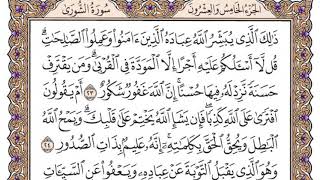 الجزء الخامس والعشرون سورة الشورى
ذَٰلِكَ ٱلَّذِي يُبَشِّرُ ٱللَّهُ عِبَادَهُ ٱلَّذِينَ ءَامَنُوا۟ وَعَمِلُوا۟ ٱلصَّـٰلِحَـٰتِۗ
قُل لَّآ أَسْـَٔلُكُمْ عَلَيْهِ أَجْرًا إِلَّا ٱلْمَوَدَّةَ فِي ٱلْقُرْبَىٰۗ وَمَن يَقْتَرِفْ
حَسَنَةً نَّزِدْ لَهُۥ فِيهَا حُسْنًاۚ إِنَّ ٱللَّهَ غَفُورٌ شَكُورٌ ٢٣ أَمْ يَقُولُونَ
ٱفْتَرَىٰ عَلَى ٱللَّهِ كَذِبًاۖ فَإِن يَشَإِ ٱللَّهُ يَخْتِمْ عَلَىٰ قَلْبِكَۗ وَيَمْحُ ٱللَّهُ
ٱلْبَـٰطِلَ وَيُحِقُّ ٱلْحَقَّ بِكَلِمَـٰتِهِۦٓۚ إِنَّهُۥ عَلِيمٌۢ بِذَاتِ ٱلصُّدُورِ ٢٤
وَهُوَ ٱلَّذِي يَقْبَلُ ٱلتَّوْبَةَ عَنْ عِبَادِهِۦ وَيَعْفُوا۟ عَنِ ٱلسَّيِّـَٔاتِ